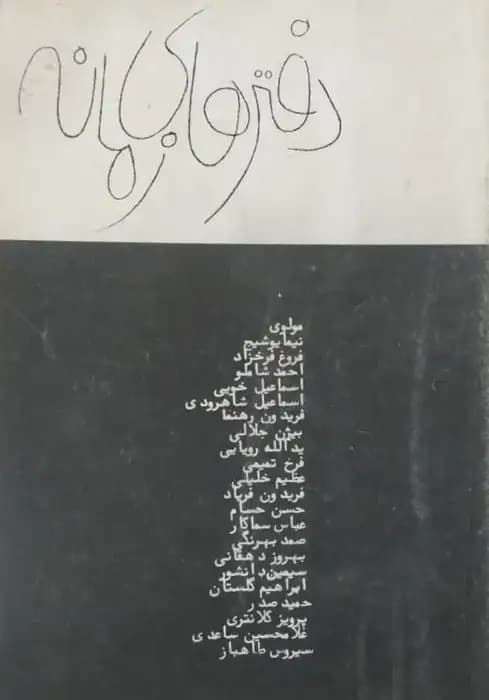 دفترهای زمانه
مولوی
نیمایوشیج
فروغ فرخزاد
احمد شاملو
اسماعیل خویی
اسماعیل شاهرودی
فریدون رهنما
بیژن جلالی
یدالله رویایی
فرخ تمیمی
عظیم خلیلی
فریدون فریاد
حسن حسام
عباس سماکار
صمد بهرنگی
بهروز دهقانی
سیمین دانشور
ابراهیم گلستان
حمید صدر
پرویز کلانتری
غلامحسین ساعدی
سیروس طاهباز